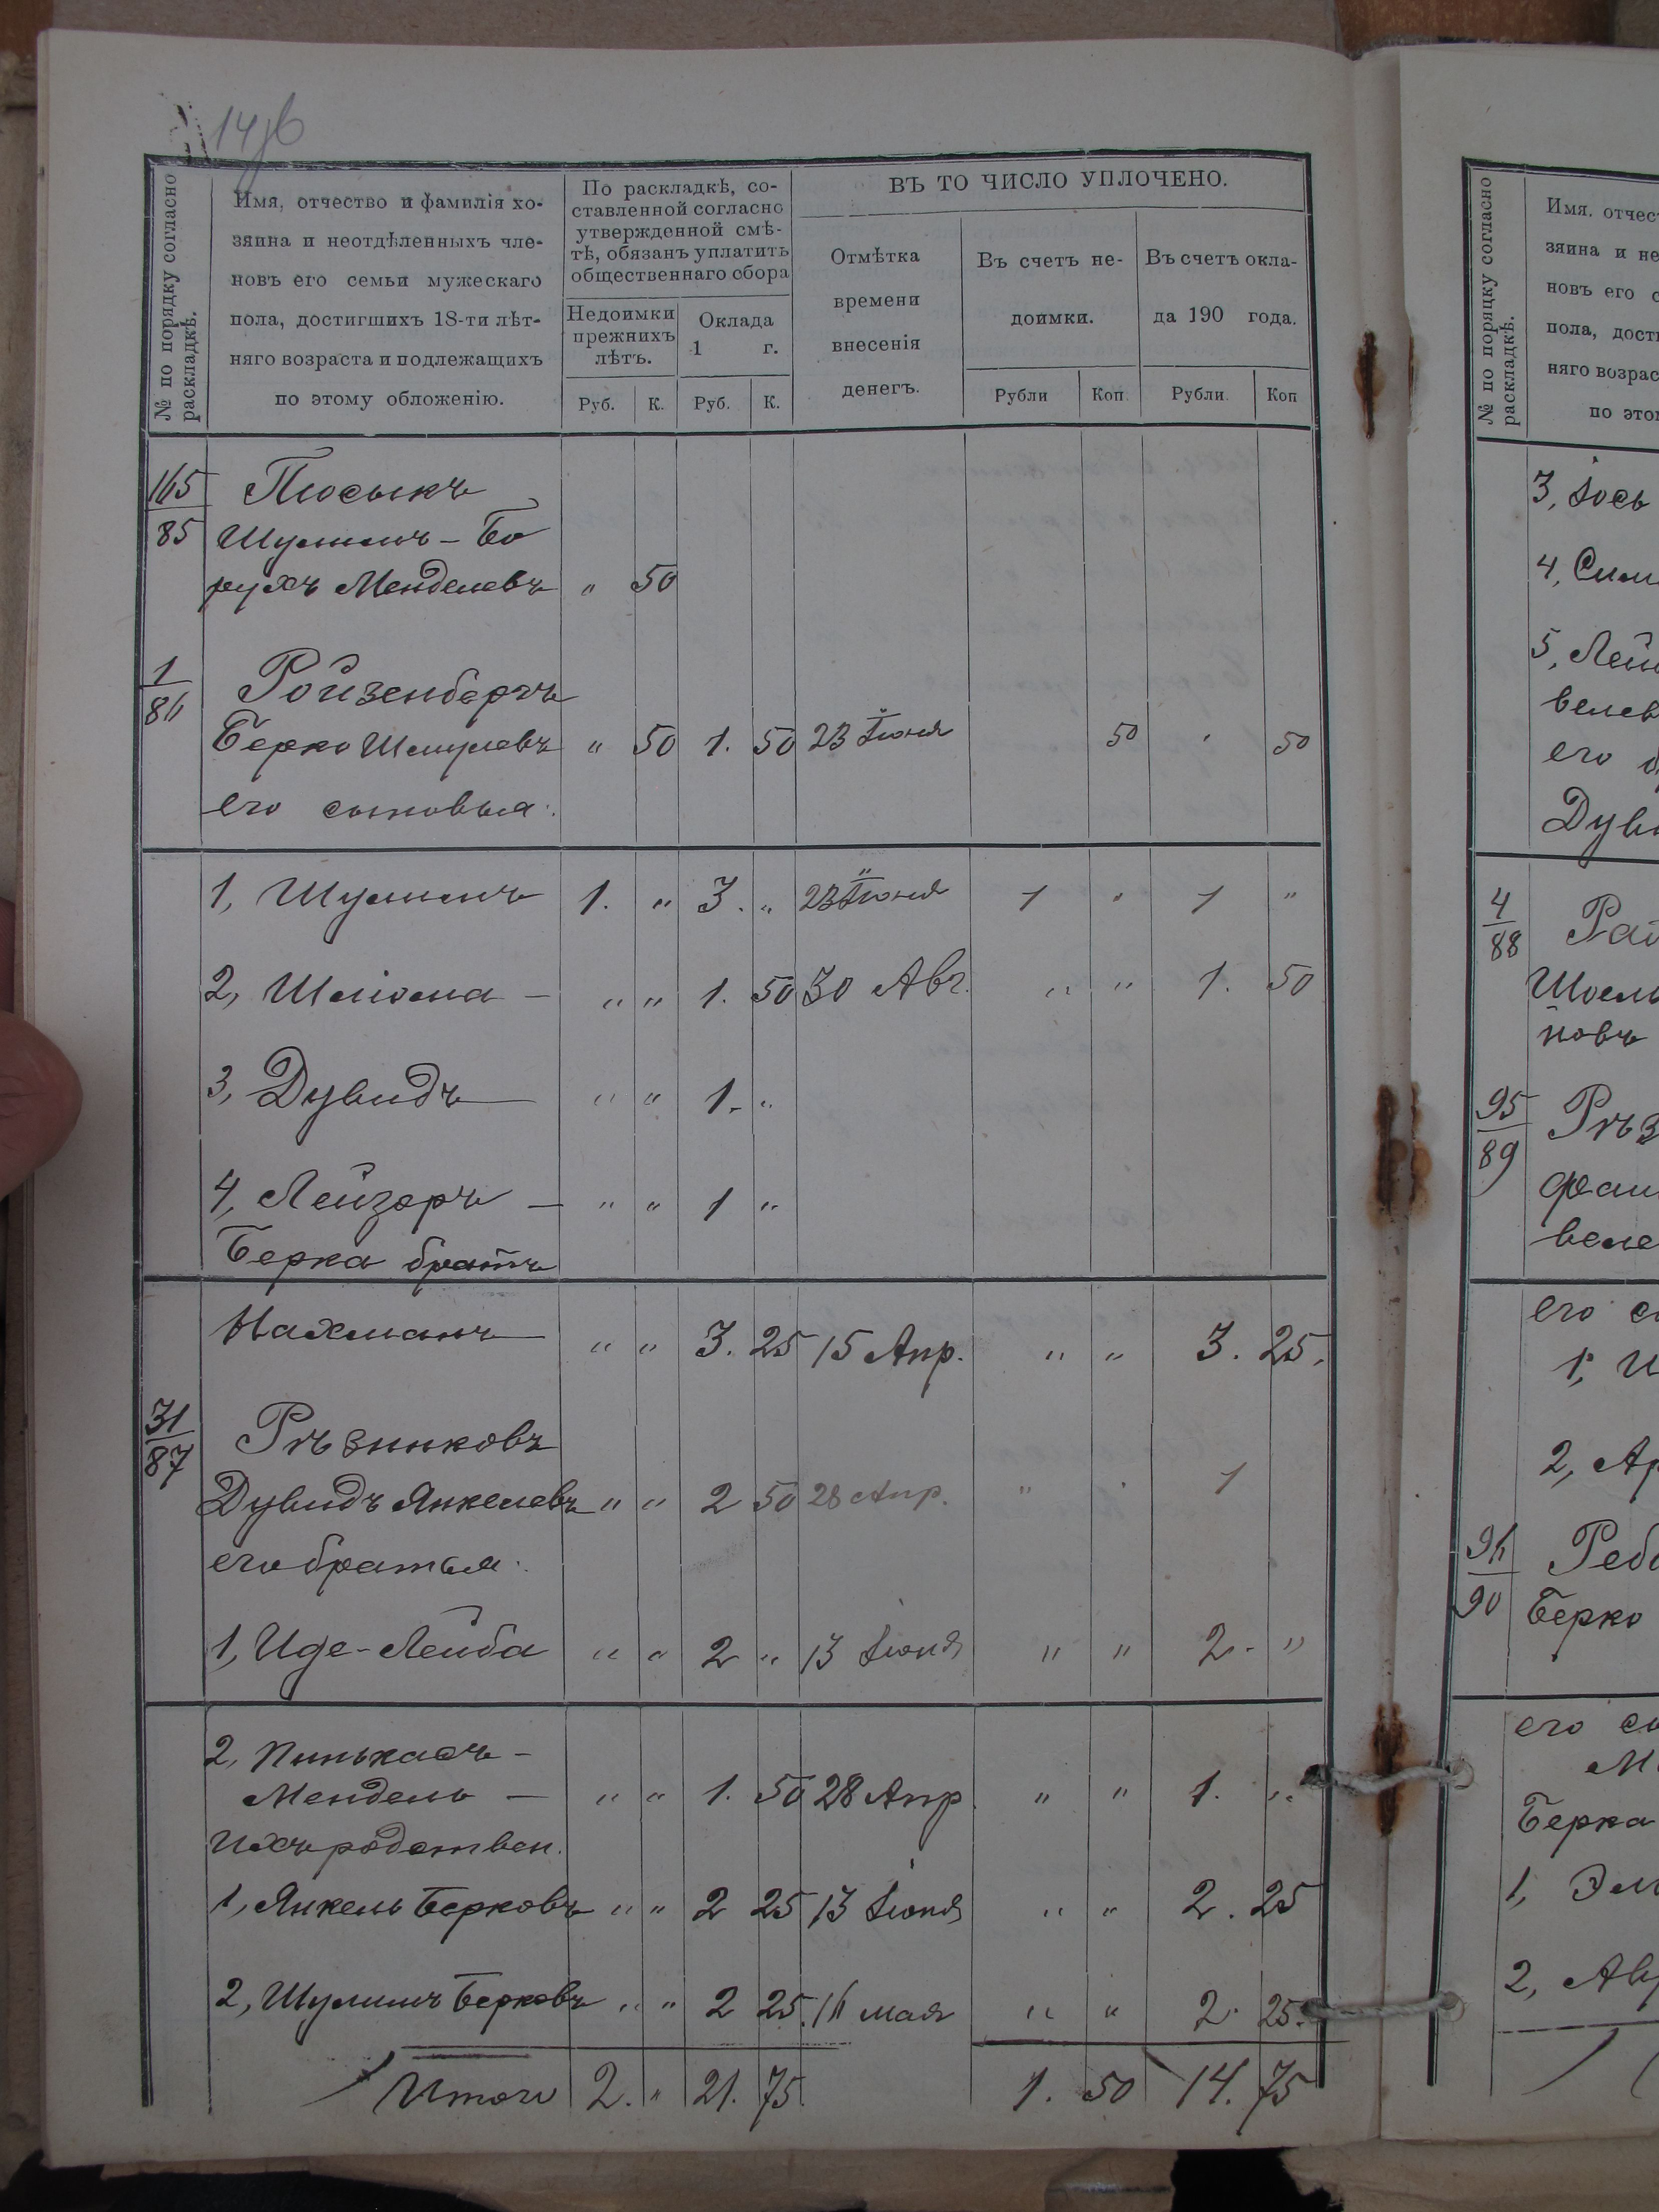 № по порядку согласно
раскладкѣ.
Имя, отчество и фамилія хо-
зяина и неотдѣленныхъ чле-
новъ его семьи мужескаго
пола, достигшихъ 18-ти лѣт-
няго возраста и подлежащихъ
по этому обложенію.
По раскладкѣ, со-
ставленной согласно
утвержденной смѣ-
тѣ, обязанъ уплатить
общественнаго сбора
Недоимки
прежнихъ
лѣтъ.
Оклада
1 г.
Руб. К. Руб. К.
ВЪ ТО ЧИСЛО УПЛОЧЕНО.
Отмѣтка
времени
внесенія
денегъ.
Въ счетъ не-
доимки.
Въ счетъ окла-
да 190 года.
Рубли Коп. Рубли. Коп
165
85
Плосыкъ
Шулимъ - Бо
рухъ Менделевъ " 50
1
86
Ройзенбергъ
Берко Шмулевъ " 50 1. 50 23 Іюня 50 " 50
его сыновья:
1, Шулимъ 1. " 3. " 23 Іюня 1 " 1 "
2, Шліома — " " 1. 50 30 Авг. " " 1. 50
3, Дувидъ — " " 1. "
4, Лейзоръ — " " 1 "
Берка братъ
Нахманъ — " " 3. 25 15 Апр. " " 3. 25.
31
87
Рѣзниковъ
Дувидъ Янкелевъ " " 2 50 28 Апр. " " 1
его братья:
1, Иде-Лейба " " 2 " 13 Іюня " " 2. "
2, Пинькасъ -
Мендель — " " 1. 50 28 Апр. " " 1. "
Ихъ родствен.
1, Янкель Берковъ " " 2 25 13 Іюня " " 2. 25
2, Шулимъ Берковъ " " 2 25. 16 мая " " 2. 25.
Итого 2. " 21. 75. 1. 50 14. 75
№ по порядку согласно
раскладкѣ.
Имя, отчес
зяина и не
новъ его с
пола, дости
няго возрас
по это
3, Іось
4,
5,
велев
его
4
88
Шоель
новъ
95
89
Рѣз
веле
его с
1,
2,
96
90
Берко
его сы
Берка
1,
2,